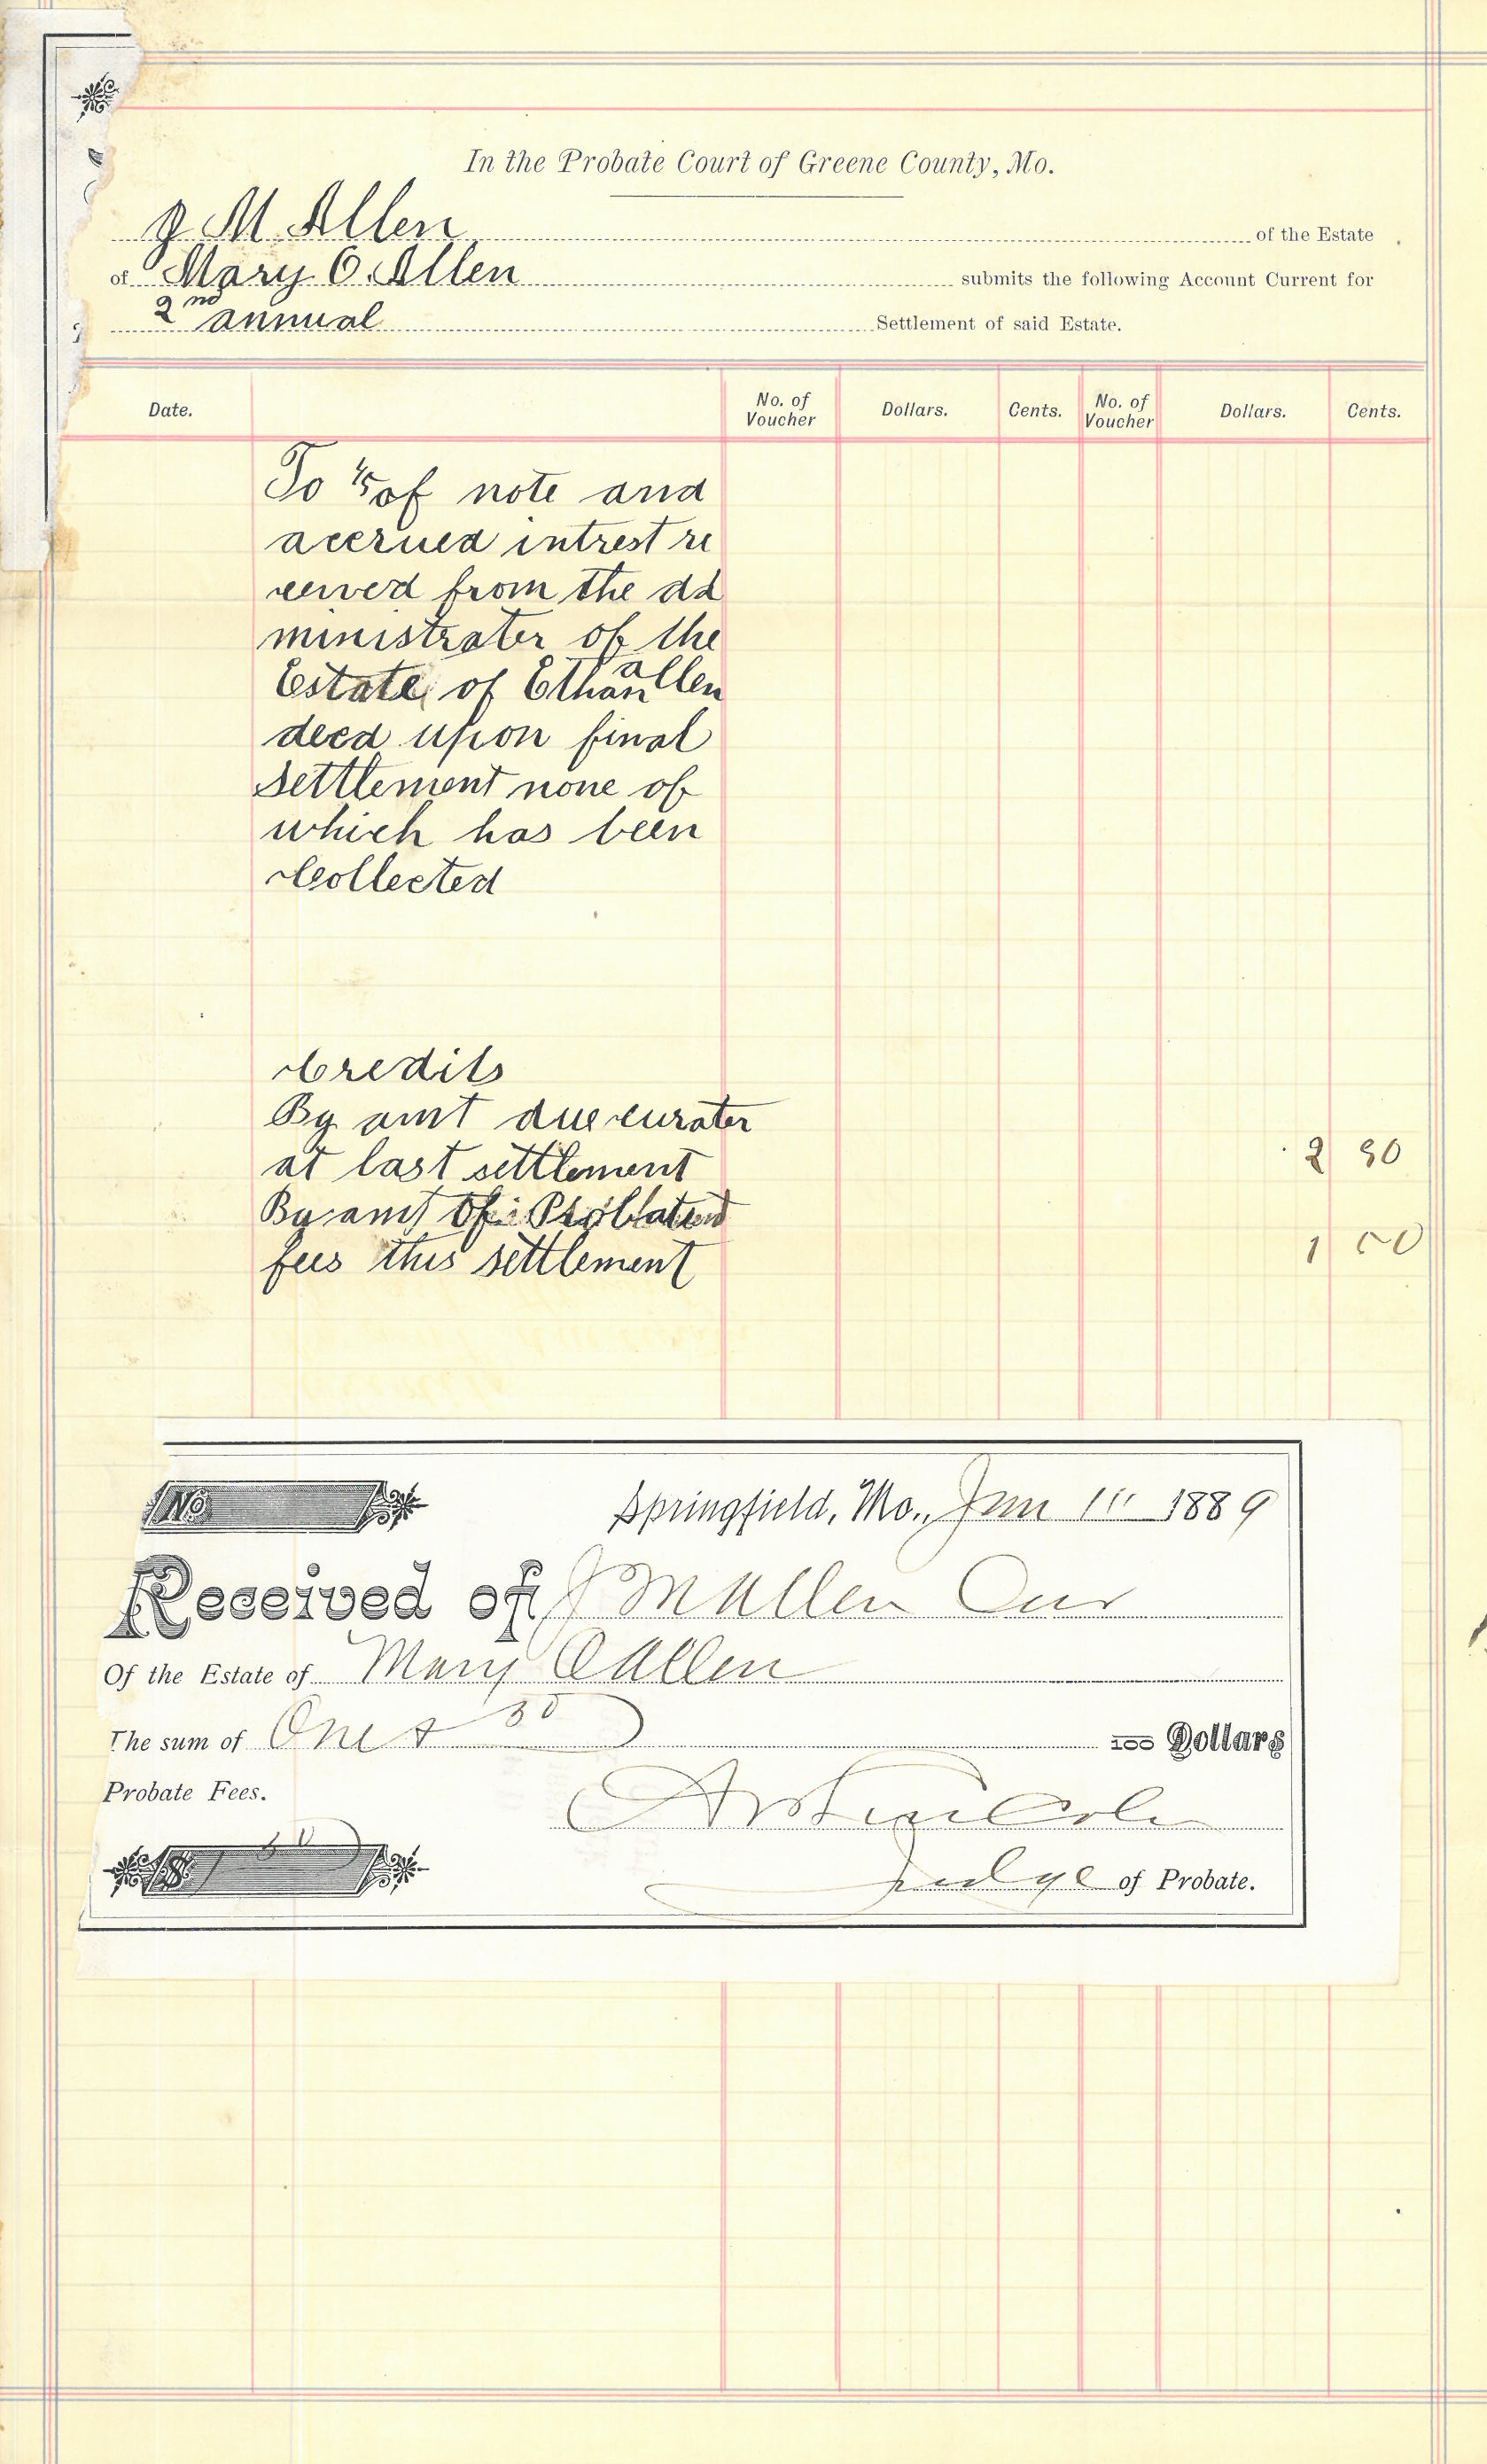 In the Probate Court of Greene County, Mo.
J M Allen of the Estate
of Mary O. Allen submits the following Account Current for
2nd annual Settlement of said Estate.
Date. No. of Voucher Dollars. Cents. No. of Voucher Dollars. Cents.
To 1/5 of note and
accrued intrest re
ceived from the ad
ministrater of the
Estate of Ethan allen
decd upon final
settlement none of
which has been
Collected
Credits
By amt due curater
at last settlement 2 90
By amt of Probate
fees this settlement 1 50
No
Springfield, Mo., Jan 1889
Received of J M Allen Cur
Of the Estate of Mary O Allen
The sum of One & 50 100 Dollars
Probate Fees.
Judge of Probate.
$ 1 50